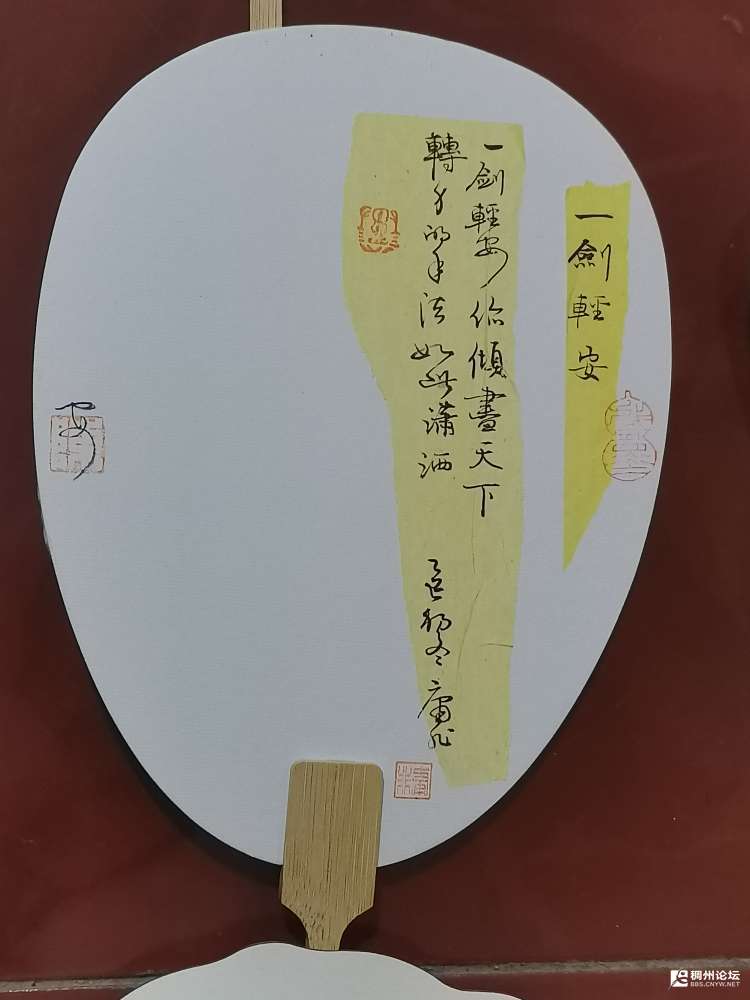 一劍輕安
一劍輕安你傾盡天下
轉身的手法如此瀟洒
安
稠州论坛
BBS.CNYW.NET